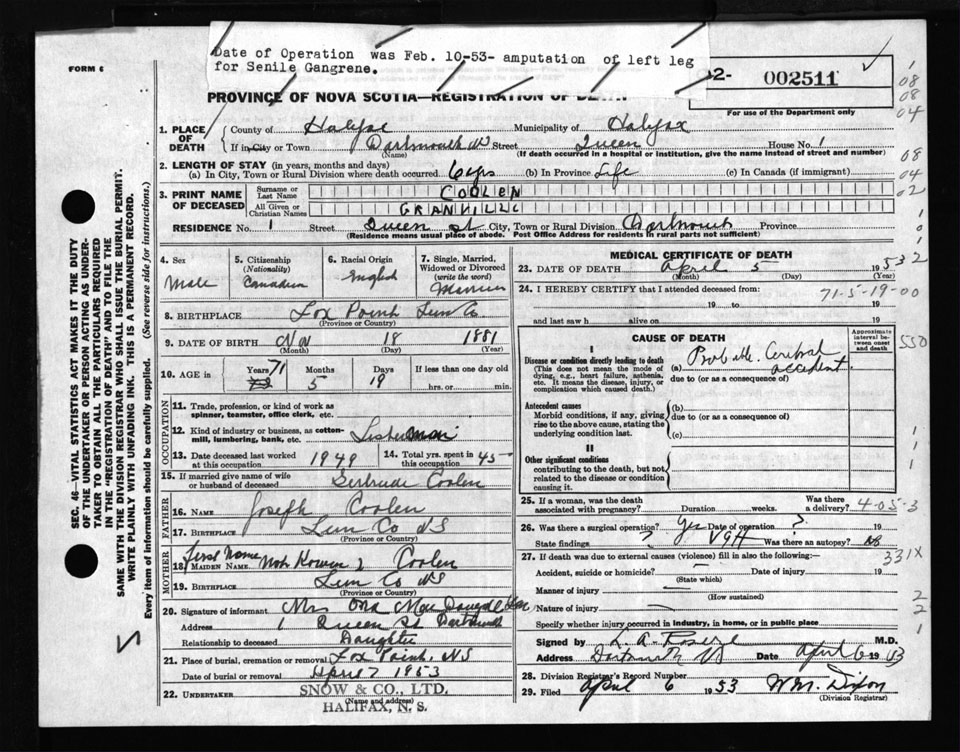 Date of Operation was Feb. 10-53- amputation of left leg
for Senile Gangrene.
FORM 6
2- 002511
For use of the Department only
PROVINCE OF NOVA SCOTIA—REGISTRATION OF DEATH
1. PLACE OF DEATH
County of Halifax Municipality of Halifax
If in City or Town Dartmouth Street Queen House No. 1
(Name) (If death occurred in a hospital or institution, give the name instead of street and number)
2. LENGTH OF STAY (in years, months and days)
(a) In City, Town or Rural Division where death occurred 6 (b) In Province Life (c) In Canada (if immigrant)
3. PRINT NAME OF DECEASED
Surname or Last Name COOLEN
All Given or Christian Names GRANVILLE
RESIDENCE No. 1 Street Queen st City, Town or Rural Division Dartmouth Province
(Residence means usual place of abode. Post Office Address for residents in rural parts not sufficient)
4. Sex Male
5. Citizenship (Nationality) Canadian
6. Racial Origin English
7. Single, Married, Widowed or Divorced (write the word) Married
8. BIRTHPLACE Fox Point Lun Co
(Province or Country)
9. DATE OF BIRTH Nov 18 1881
(Month) (Day) (Year)
10. AGE in Years 71 Months 5 Days 19 If less than one day old
hrs. or min.
OCCUPATION
11. Trade, profession, or kind of work as spinner, teamster, office clerk, etc.
12. Kind of industry or business, as cotton-mill, lumbering, bank, etc. Fisherman
13. Date deceased last worked at this occupation 1949 14. Total yrs. spent in this occupation 45
15. If married give name of wife or husband of deceased Gertrude Coolen
FATHER
16. Name Joseph Coolen
17. Birthplace Lun Co NS
(Province or Country)
MOTHER
18. First Name
MAIDEN NAME Not Known Coolen
19. BIRTHPLACE Lun Co NS
(Province or Country)
20. Signature of informant Mrs Ona MacDougall
Address 1 Queen St Dartmouth
Relationship to deceased Daughter
21. Place of burial, cremation or removal Fox Point, NS
Date of burial or removal April 7 1953
22. UNDERTAKER SNOW & CO., LTD.
(Name and address)
HALIFAX, N. S.
MEDICAL CERTIFICATE OF DEATH
23. DATE OF DEATH April 5 1953
(Month) (Day) (Year)
24. I HEREBY CERTIFY that I attended deceased from:
71-5-19-00
19 to 19
and last saw h alive on 19
CAUSE OF DEATH
Approximate interval between onset and death
I
Disease or condition directly leading to death
(This does not mean the mode of dying, e.g., heart failure, asthenia, etc. It means the disease, injury, or complication which caused death.)
(a) Probable Cerebral accident
due to (or as a consequence of)
Antecedent causes
Morbid conditions, if any, giving rise to the above cause, stating the underlying condition last.
(b)
due to (or as a consequence of)
(c)
II
Other significant conditions
contributing to the death, but not related to the disease or condition causing it.
25. If a woman, was the death associated with pregnancy? Duration weeks. Was there a delivery? 4-05-3
26. Was there surgical operation? Yes Date of operation ? 19
State findings ? VGH Was there an autopsy? No
27. If death was due to external causes (violence) fill in also the following:— 331X
Accident, suicide or homicide? — Date of injury 19
(State which)
Manner of injury —
(How sustained)
Nature of injury —
Specify whether injury occurred in industry, in home, or in public place
Signed by L. A. M.D.
Address Dartmouth Date April 6 19
28. Division Registrar's Record Number
29. Filed April 6 1953 W.M. Dixon
(Division Registrar)
SEC. 46—VITAL STATISTICS ACT MAKES IT THE DUTY
OF THE UNDERTAKER OR PERSON ACTING AS UNDER-
TAKER TO OBTAIN ALL THE PARTICULARS REQUIRED
IN THE "REGISTRATION OF DEATH" AND TO FILE THE
SAME WITH THE DIVISION REGISTRAR WHO SHALL ISSUE THE BURIAL PERMIT.
WRITE PLAINLY WITH UNFADING INK. THIS IS A PERMANENT RECORD.
Every item of information should be carefully supplied. (See reverse side for instructions.)